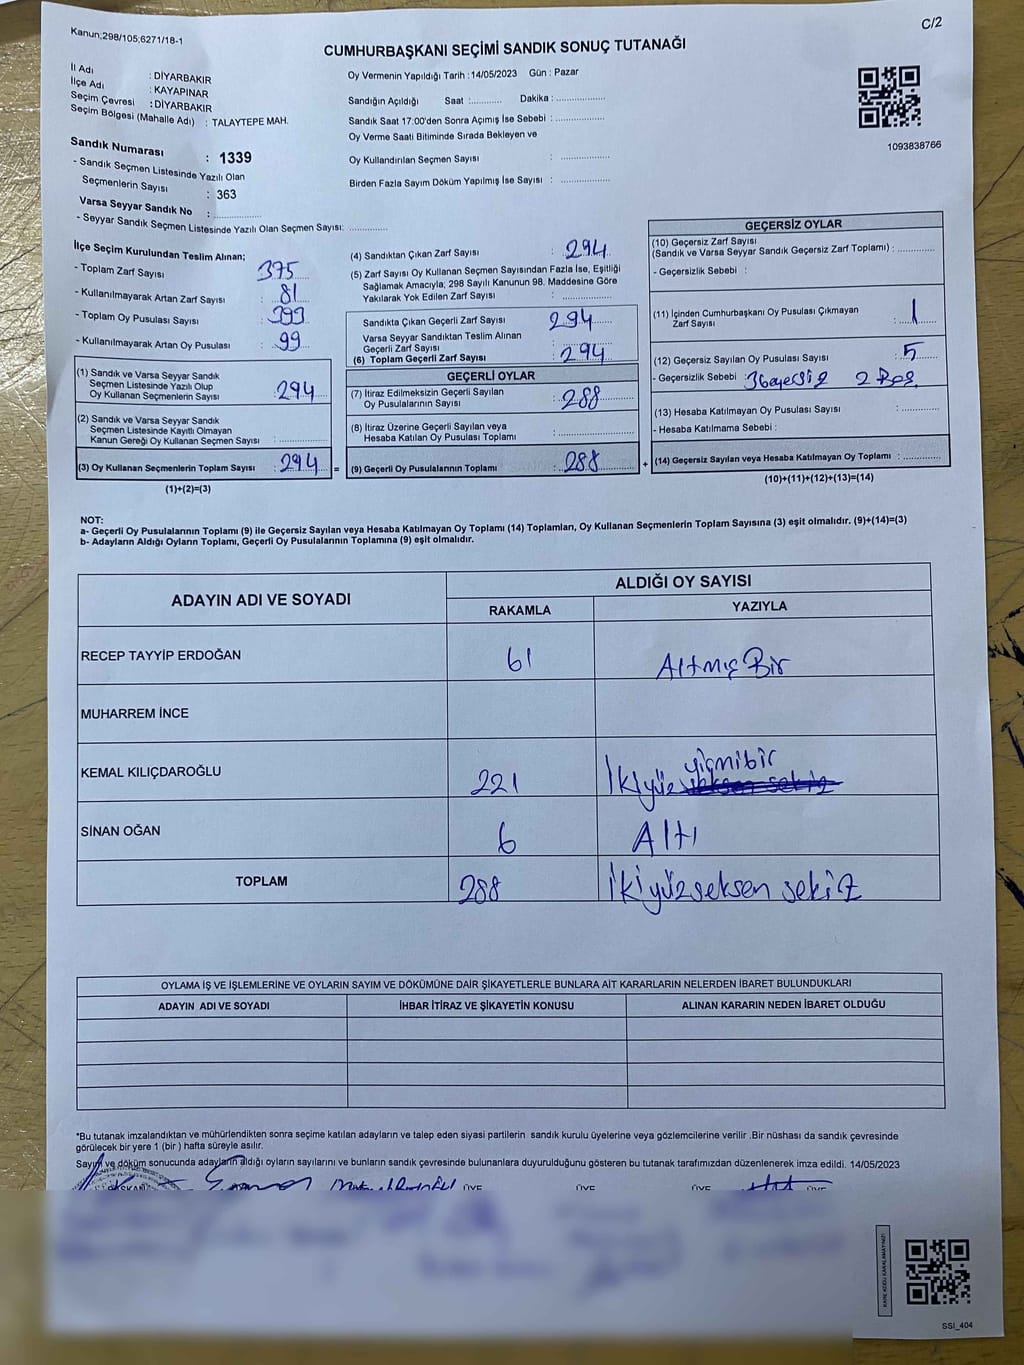 Kanun;298/105;6271/18-1
C/2
CUMHURBAŞKANI SEÇİMİ SANDIK SONUÇ TUTANAĞI
İl Adı : DİYARBAKIR
İlçe Adı : KAYAPINAR
Seçim Çevresi : DİYARBAKIR
Seçim Bölgesi (Mahalle Adı) : TALAYTEPE MAH.
Sandık Numarası : 1339
- Sandık Seçmen Listesinde Yazılı Olan
Seçmenlerin Sayısı : 363
Varsa Seyyar Sandık No :
- Seyyar Sandık Seçmen Listesinde Yazılı Olan Seçmen Sayısı:
Oy Vermenin Yapıldığı Tarih : 14/05/2023 Gün : Pazar
Sandığın Açıldığı Saat : Dakika :
Sandık Saat 17:00'den Sonra Açımış İse Sebebi :
Oy Verme Saati Bitiminde Sırada Bekleyen ve
Oy Kullandırılan Seçmen Sayısı :
Birden Fazla Sayım Döküm Yapılmış İse Sayısı :
1093838766
İlçe Seçim Kurulundan Teslim Alınan;
- Toplam Zarf Sayısı 375
- Kullanılmayarak Artan Zarf Sayısı : 81
- Toplam Oy Pusulası Sayısı : 393
- Kullanılmayarak Artan Oy Pusulası : 99
(1) Sandık ve Varsa Seyyar Sandık
Seçmen Listesinde Yazılı Olup
Oy Kullanan Seçmenlerin Sayısı : 294
(2) Sandık ve Varsa Seyyar Sandık
Seçmen Listesinde Kayıtlı Olmayan
Kanun Gereği Oy Kullanan Seçmen Sayısı :
(3) Oy Kullanan Seçmenlerin Toplam Sayısı : 294 =
(1)+(2)=(3)
(4) Sandıktan Çıkan Zarf Sayısı : 294
(5) Zarf Sayısı Oy Kullanan Seçmen Sayısından Fazla İse, Eşitliği
Sağlamak Amacıyla; 298 Sayılı Kanunun 98. Maddesine Göre
Yakılarak Yok Edilen Zarf Sayısı :
Sandıkta Çıkan Geçerli Zarf Sayısı 294
Varsa Seyyar Sandıktan Teslim Alınan
Geçerli Zarf Sayısı
(6) Toplam Geçerli Zarf Sayısı : 294
GEÇERLİ OYLAR
(7) İtiraz Edilmeksizin Geçerli Sayılan
Oy Pusulalarının Sayısı : 288
(8) İtiraz Üzerine Geçerli Sayılan veya
Hesaba Katılan Oy Pusulası Toplamı :
(9) Geçerli Oy Pusulalarının Toplamı : 288 +
GEÇERSİZ OYLAR
(10) Geçersiz Zarf Sayısı
(Sandık ve Varsa Seyyar Sandık Geçersiz Zarf Toplamı) :
- Geçersizlik Sebebi :
(11) İçinden Cumhurbaşkanı Oy Pusulası Çıkmayan
Zarf Sayısı : 1
(12) Geçersiz Sayılan Oy Pusulası Sayısı : 5
- Geçersizlik Sebebi : 3 2 Boş
(13) Hesaba Katılmayan Oy Pusulası Sayısı :
- Hesaba Katılmama Sebebi :
(14) Geçersiz Sayılan veya Hesaba Katılmayan Oy Toplamı :
(10)+(11)+(12)+(13)=(14)
NOT:
a- Geçerli Oy Pusulalarının Toplamı (9) ile Geçersiz Sayılan veya Hesaba Katılmayan Oy Toplamı (14) Toplamları, Oy Kullanan Seçmenlerin Toplam Sayısına (3) eşit olmalıdır. (9)+(14)=(3)
b- Adayların Aldığı Oyların Toplamı, Geçerli Oy Pusulalarının Toplamına (9) eşit olmalıdır.
ADAYIN ADI VE SOYADI ALDIĞI OY SAYISI
RAKAMLA YAZIYLA
RECEP TAYYİP ERDOĞAN 61 Altmış Bir
MUHARREM İNCE
KEMAL KILIÇDAROĞLU 221 İkiyüz yirmibir
SİNAN OĞAN 6 Altı
TOPLAM 288 İkiyüzseksen sekiz
OYLAMA İŞ VE İŞLEMLERİNE VE OYLARIN SAYIM VE DÖKÜMÜNE DAİR ŞİKAYETLERLE BUNLARA AİT KARARLARIN NELERDEN İBARET BULUNDUKLARI
ADAYIN ADI VE SOYADI İHBAR İTİRAZ VE ŞİKAYETİN KONUSU ALINAN KARARIN NEDEN İBARET OLDUĞU
*Bu tutanak imzalandıktan ve mühürlendikten sonra seçime katılan adayların ve talep eden siyasi partilerin sandık kurulu üyelerine veya gözlemcilerine verilir .Bir nüshası da sandık çevresinde
görülecek bir yere 1 (bir ) hafta süreyle asılır.
Sayım ve döküm sonucunda adayların aldığı oyların sayılarını ve bunların sandık çevresinde bulunanlara duyurulduğunu gösteren bu tutanak tarafımızdan düzenlenerek imza edildi. 14/05/2023
BAŞKAN ÜYE ÜYE ÜYE ÜYE
SSI_404